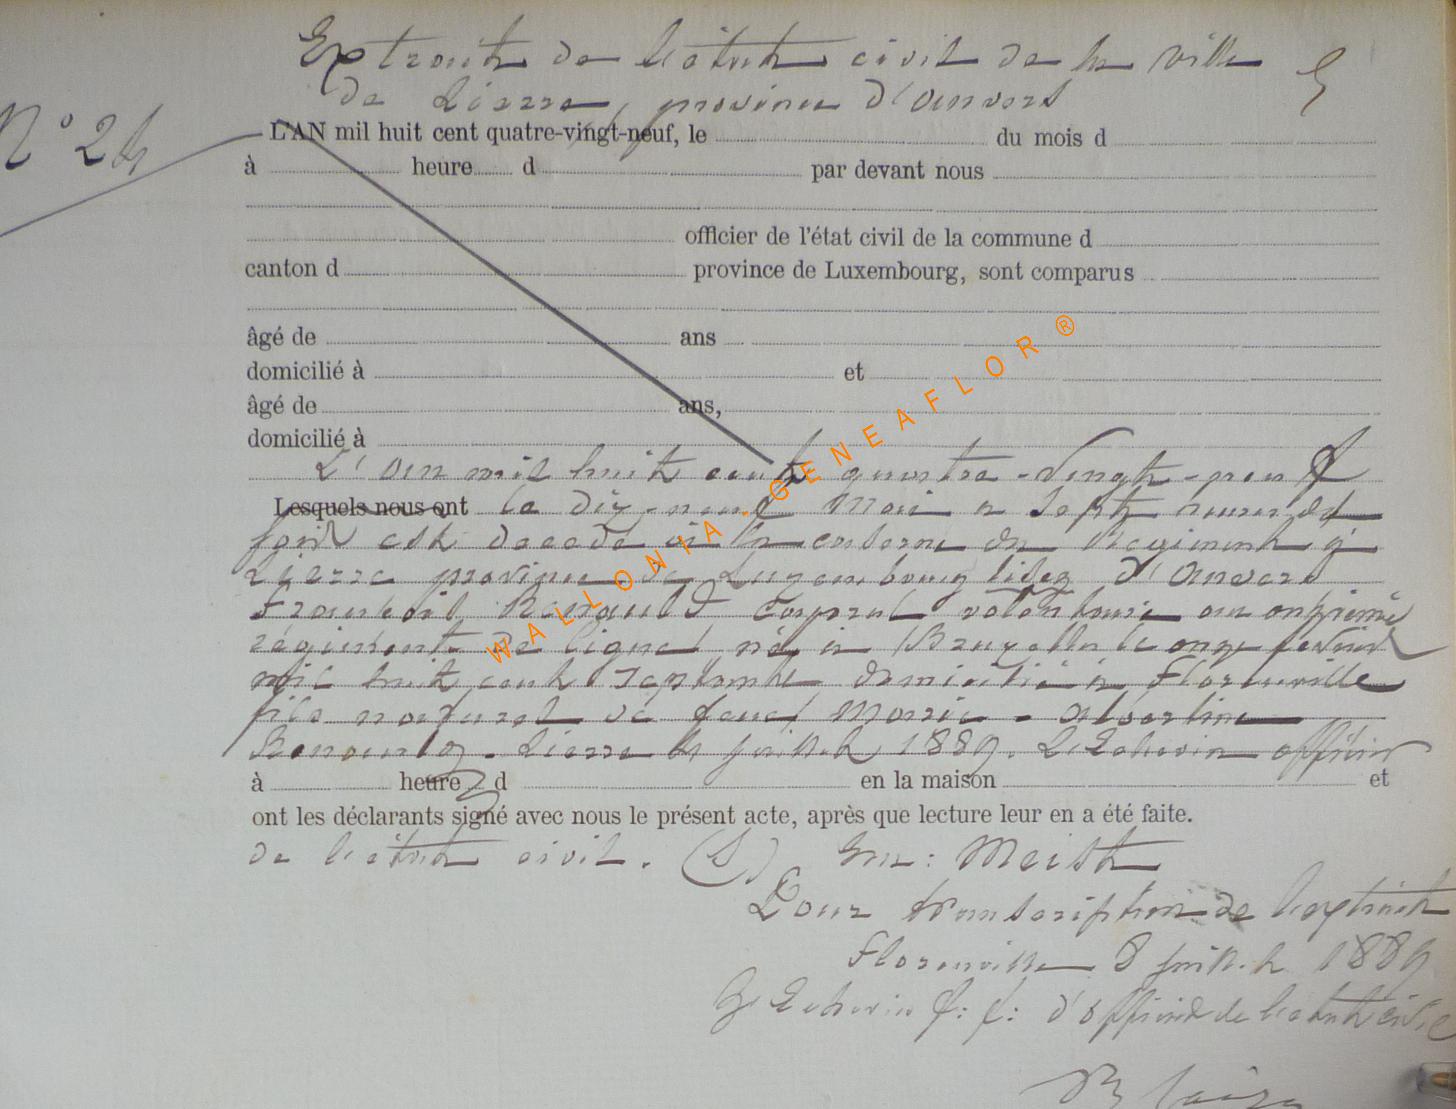 Extrait de l'état civil de la ville
de Lierre, province d'Anvers
N° 24
L'AN mil huit cent quatre-vingt-neuf, le du mois d
à heure d par devant nous
officier de l'état civil de la commune d
canton d province de Luxembourg, sont comparus
âgé de ans
domicilié à et
âgé de ans,
domicilié à
L'an mil huit cent quatre-vingt-neuf
Lesquels nous ont le dix-neuf Mai à sept heures du
soir est décédé à la caserne du Régiment à
Lierre province de Luxembourg lisez d'Anvers
Renauld caporal volontaire au onzième
régiment de ligne né à Bruxelles le onze février
mil huit cent septante domicilié à Florenville
fils naturel de feue Marie-Albertine
Renauld. Lierre le 4 juillet 1889. L'Echevin officier
à heure d en la maison et
ont les déclarants signé avec nous le présent acte, après que lecture leur en a été faite.
de l'état civil. (S) Em: Meist
Pour transcription de l'extrait
Florenville 8 juillet 1889
L'Echevin f: f: d'officier de l'état civil
WALLONIA - GENEAFLOR ®